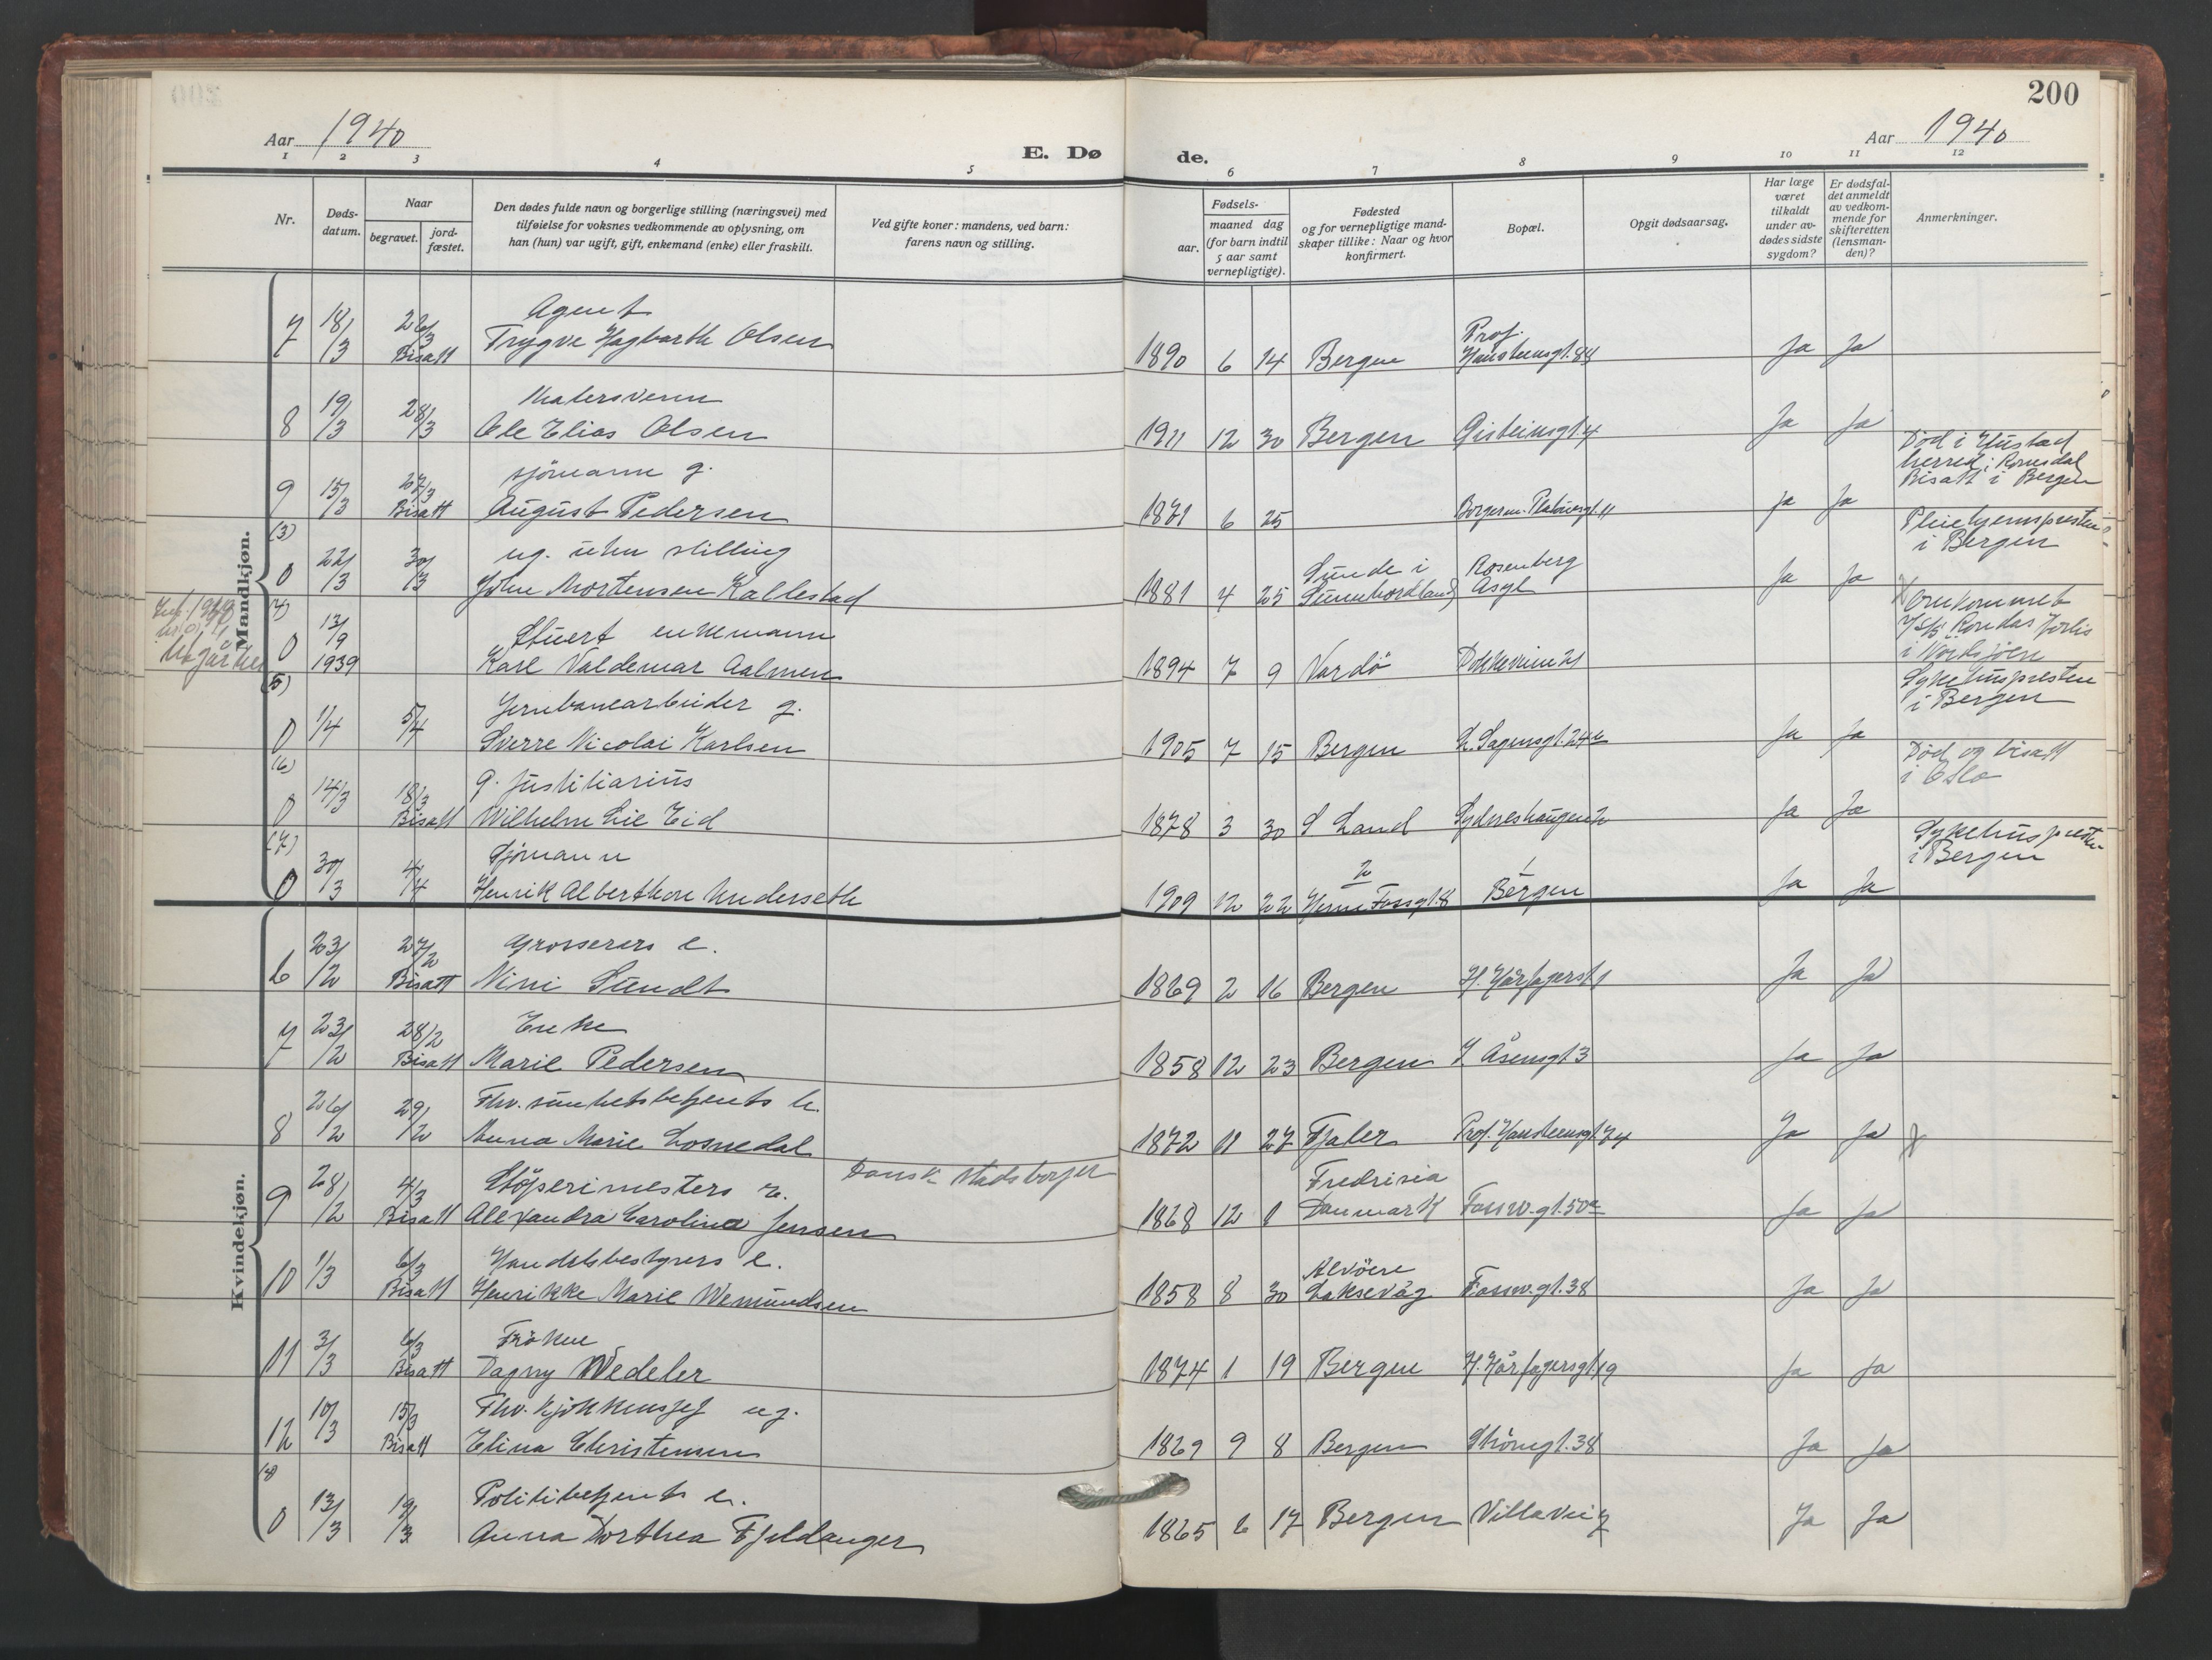 200
Aar 1940
Aar 1940
E. Dø
de.
1 2 3 4 5 6 7 8 9 10 11 12
Nr.
Døds-
datum.
Naar
begravet.
jord-
fæstet.
Den dødes fulde navn og borgerlige stilling (næringsvei) med
tilføielse for voksnes vedkommende av oplysning, om
han (hun) var ugift, gift, enkemand (enke) eller fraskilt.
Ved gifte koner: mandens, ved barn:
farens navn og stilling.
Fødsels-
aar.
maaned dag
(for barn indtil
5 aar samt
vernepligtige).
Fødested
og for vernepligtige mand-
skaper tillike: Naar og hvor
konfirmert.
Bopæl.
Opgit dødsaarsag.
Har læge
været
tilkaldt
under av-
dødes sidste
sygdom?
Er dødsfal-
det anmeldt
av vedkom-
mende for
skifteretten
(lensman-
den)?
Anmerkninger.
Mandkjøn.
Agent
7 18/3 26/3 Bisatt Trygve Hagbarth Olsen 1890 6 14 Bergen Prof. Hansteensgt. 84 Ja Ja
Malersvenn
8 19/3 28/3 Ole Elias Olsen 1911 12 30 Bergen Gisteinsgt 4 Ja Ja
sjömann g.
9 15/3 27/3 Bisatt August Pedersen 1871 6 25 Borgerm. Platousgt. 11 Ja Ja
Död i Hustad
herred i Romsdal
Bisatt i Bergen
(3)
ug. uten stilling
0 22/3 30/3 John Mortensen Kallestad 1881 4 25 Sunde i Sunnhordland Rosenberg Asyl Ja Ja
Pleiehjemspresten
i Bergen
(4)
Stuert enkemann
0 13/9 1939 Karl Valdemar Aalmen 1894 7 9 Vardö Dokkeveien 21
Omkommet
v/s/s Rondas forlis
i Nordsjöen
(5)
Jernbanearbeider g.
0 1/4 5/4 Sverre Nicolai Karlsen 1905 7 15 Bergen L. Sagensgt. 24 Ja Ja
Sykehuspresten
i Bergen
(6)
g. Justitiarius
0 14/3 18/3 Bisatt Wilhelm Lie Eid 1878 3 30 S Land Sydneshaugen Ja Ja
Död og bisatt
i Oslo
(7)
Sjömann
0 30/3 4/4 Henrik Alberthon Underseth 1909 12 22 Bergen Ja Ja
Sykehuspresten
i Bergen
Kvindekjøn.
Grosserers e.
6 23/2 27/2 Bisatt Nini Sundt 1869 2 16 Bergen H. Hårfagersgt 1 Ja Ja
Enke
7 23/2 28/2 Bisatt Marie Pedersen 1858 12 23 Bergen I. Åsensgt 3 Ja Ja
Fhv. sunhetsbetjents h.
8 26/2 29/2 Anna Marie Losnedal 1872 11 27 Fjaler Prof. Hansteensgt. 74 Ja Ja
Stöperimesters e. Dansk stadsborger
9 28/2 4/3 Bisatt Alexandra Carolina Jensen 1868 12 1 Fredricia Danmark Fossw.gt. 50a Ja Ja
Handelsbestyrers e.
10 1/3 6/3 Bisatt Henrikke Marie Wemundsen 1858 8 30 Alvöen Laksevåg Fossw.gt. 38 Ja Ja
Fröken
11 3/3 6/3 Bisatt Dagny Wedeler 1874 1 19 Bergen H. Hårfagersgt 19 Ja Ja
Fhv. kjökkensjef ug.
12 10/3 15/3 Bisatt Elina Christensen 1869 9 8 Bergen Strömgt. 38 Ja Ja
(8)
Politibetjents e.
0 13/3 19/3 Anna Dorthea Fjeldanger 1865 6 17 Bergen Villavei 7 Ja Ja